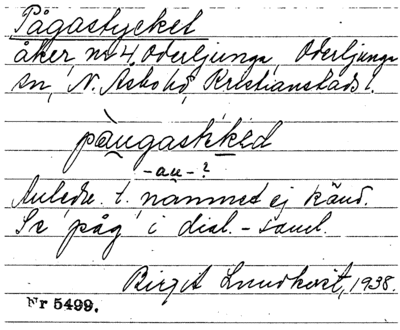 Pågastycket
åker, nr 4, Oderljunga, Oderljunga
sn, N. Åsbo hd, Kristianstads l.
pàugastikked
-au-?
Anledn. t. namnet ej känd.
Se påg i dial.-saml.
Birgit Lundkvist, 1938.
Nr 5499.